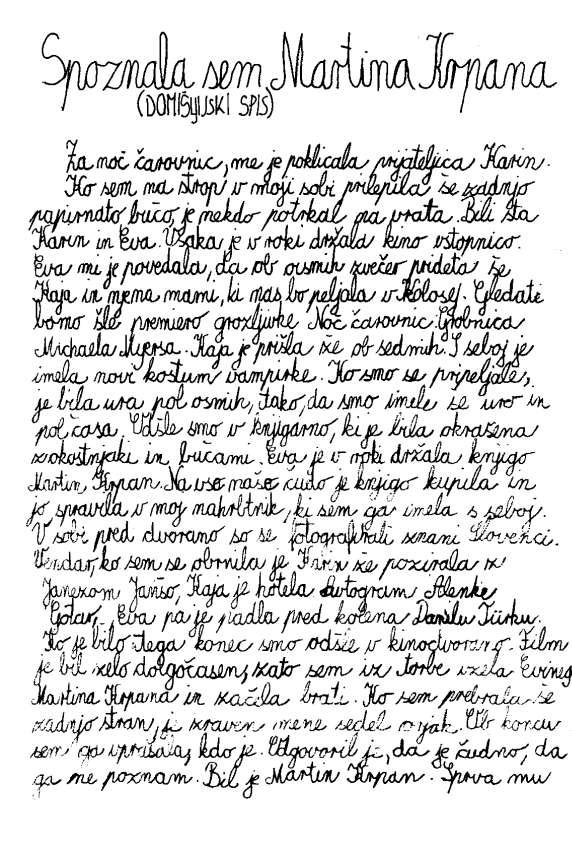 Spoznala sem Martina Krpana
(DOMIŠLJIJSKI SPIS)
Za noč čarovnic, me je poklicala prijateljica Karin.
Ko sem na strop v moji sobi prilepila še zadnjo
papirnato bučo, je nekdo potrkal na vrata. Bili sta
Karin in Eva. Vsaka je v roki držala kino vstopnico.
Eva mi je povedala, da ob osmih zvečer prideta še
Kaja in njena mami, ki nas bo peljala v Kolosej. Gledate
bomo šle premiero grozljivke Noč čarovnic Grobnica
Michaela Myersa. Kaja je prišla že ob sedmih. S seboj je
imela novi kostum vampirke. Ko smo se pripeljale,
je bila ura pol osmih, tako, da smo imele še uro in
pol časa. Odšle smo v knjigarno, ki je bila okrašena
z okostnjaki in bučami. Eva je v roki držala knjigo
Martin Krpan. Na vse naše čudo je knjigo kupila in
jo spravila v moj nahrbtnik, ki sem ga imela s seboj.
V sobi pred dvorano so se fotografirali znani Slovenci.
Vendar, ko sem se obrnila je Karin že pozirala z
Janezom Janšo, Kaja je hotela avtogram Alenke
Gotar, Eva pa je padla pred kolena Danilu Türku.
Ko je bilo tega konec smo odšle v kinodvorano. Film
je bil zelo dolgočasen, zato sem iz torbe vzela Evinega
Martina Krpana in začela brati. Ko sem prebrala še
zadnjo stran, je zraven mene sedel možak. Ob koncu
sem ga vprašala, kdo je. Odgovoril je, da je čudno, da
ga ne poznam. Bil je Martin Krpan. Sprva mu